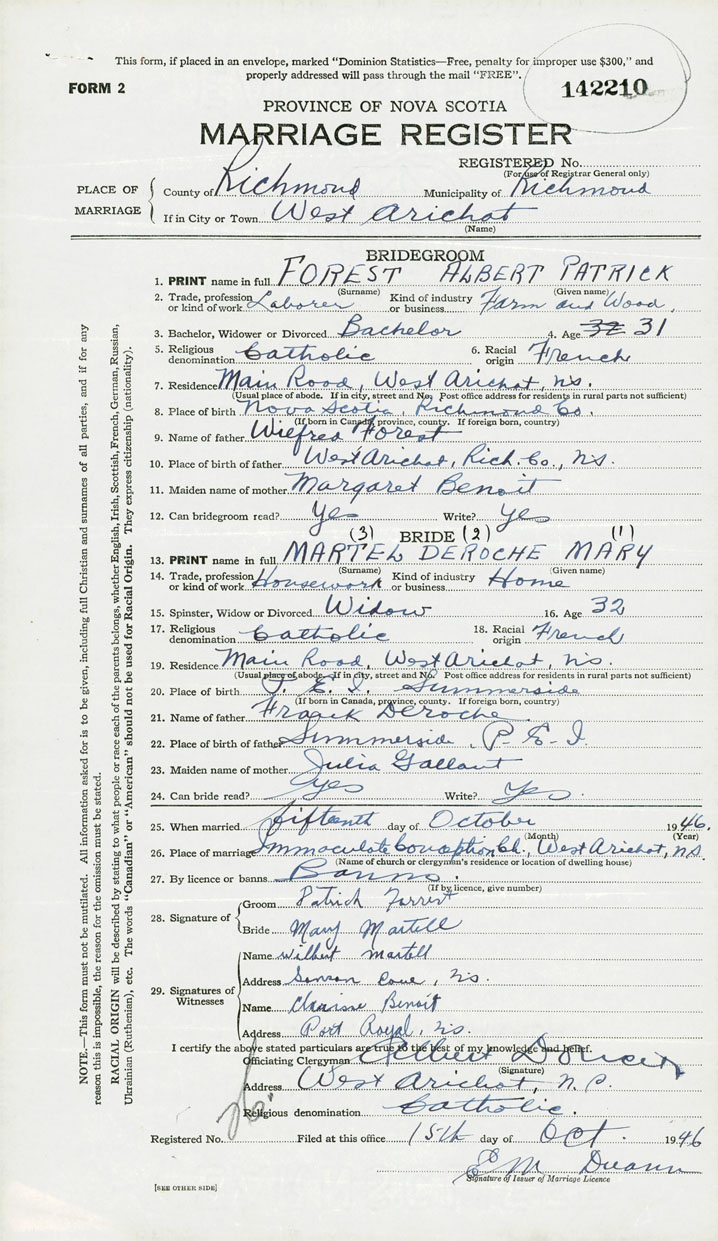 This form, if placed in an envelope, marked "Dominion Statistics—Free, penalty for improper use $300," and
properly addressed will pass through the mail "FREE".
FORM 2
142210
PROVINCE OF NOVA SCOTIA
MARRIAGE REGISTER
REGISTERED No.
(For use of Registrar General only)
PLACE OF MARRIAGE
County of Richmond Municipality of Richmond
If in City or Town West Arichat
(Name)
BRIDEGROOM
1. PRINT name in full FOREST ALBERT PATRICK
(Surname) (Given name)
2. Trade, profession or kind of work Laborer Kind of industry or business Farm and Wood
3. Bachelor, Widower or Divorced Bachelor 4. Age 32 31
5. Religious denomination Catholic 6. Racial origin French
7. Residence Main Road, West Arichat, N.S.
(Usual place of abode. If in city, street and No. Post office address for residents in rural parts not sufficient)
8. Place of birth Nova Scotia, Richmond Co.
(If born in Canada, province, county. If foreign born, country)
9. Name of father Wilfred Forest
10. Place of birth of father West Arichat, Rich. Co., N.S.
11. Maiden name of mother Margaret Benoit
12. Can bridegroom read? Yes Write? Yes
(3) BRIDE (2) (1)
13. PRINT name in full MARTEL DEROCHE MARY
(Surname) (Given name)
14. Trade, profession or kind of work Housework Kind of industry or business Home
15. Spinster, Widow or Divorced Widow 16. Age 32
17. Religious denomination Catholic 18. Racial origin French
19. Residence Main Road, West Arichat, N.S.
(Usual place of abode. If in city, street and No. Post office address for residents in rural parts not sufficient)
20. Place of birth P. E. I. Summerside
(If born in Canada, province, county. If foreign born, country)
21. Name of father Frank Deroche
22. Place of birth of father Summerside, P. E. I.
23. Maiden name of mother Julia Gallant
24. Can bride read? Yes Write? Yes.
25. When married fifteenth day of October 1946.
(Month) (Year)
26. Place of marriage Immaculate Conception Ch., West Arichat, N.S.
(Name of church or clergyman's residence or location of dwelling house)
27. By licence or banns Banns.
(If by licence, give number)
28. Signature of
Groom Patrick Forrest
Bride Mary Martell
29. Signatures of Witnesses
Name Wilbert Martell
Address Samson Cove, N.S.
Name Clarisse Benoit
Address Port Royal, N.S.
I certify the above stated particulars are true to the best of my knowledge and belief.
Officiating Clergyman
(Signature)
Address West Arichat, N.S.
Religious denomination Catholic.
Registered No. Filed at this office 15th day of Oct. 1946
E M
Signature of Issuer of Marriage Licence
[SEE OTHER SIDE]
NOTE.—This form must not be mutilated. All information asked for is to be given, including full Christian and surnames of all parties, and if for any
reason this is impossible, the reason for the omission must be stated.
RACIAL ORIGIN will be described by stating to what people or race each of the parents belongs, whether English, Irish, Scottish, French, German, Russian,
Ukrainian (Ruthenian), etc. The words "Canadian" or "American" should not be used for Racial Origin. They express citizenship (nationality).